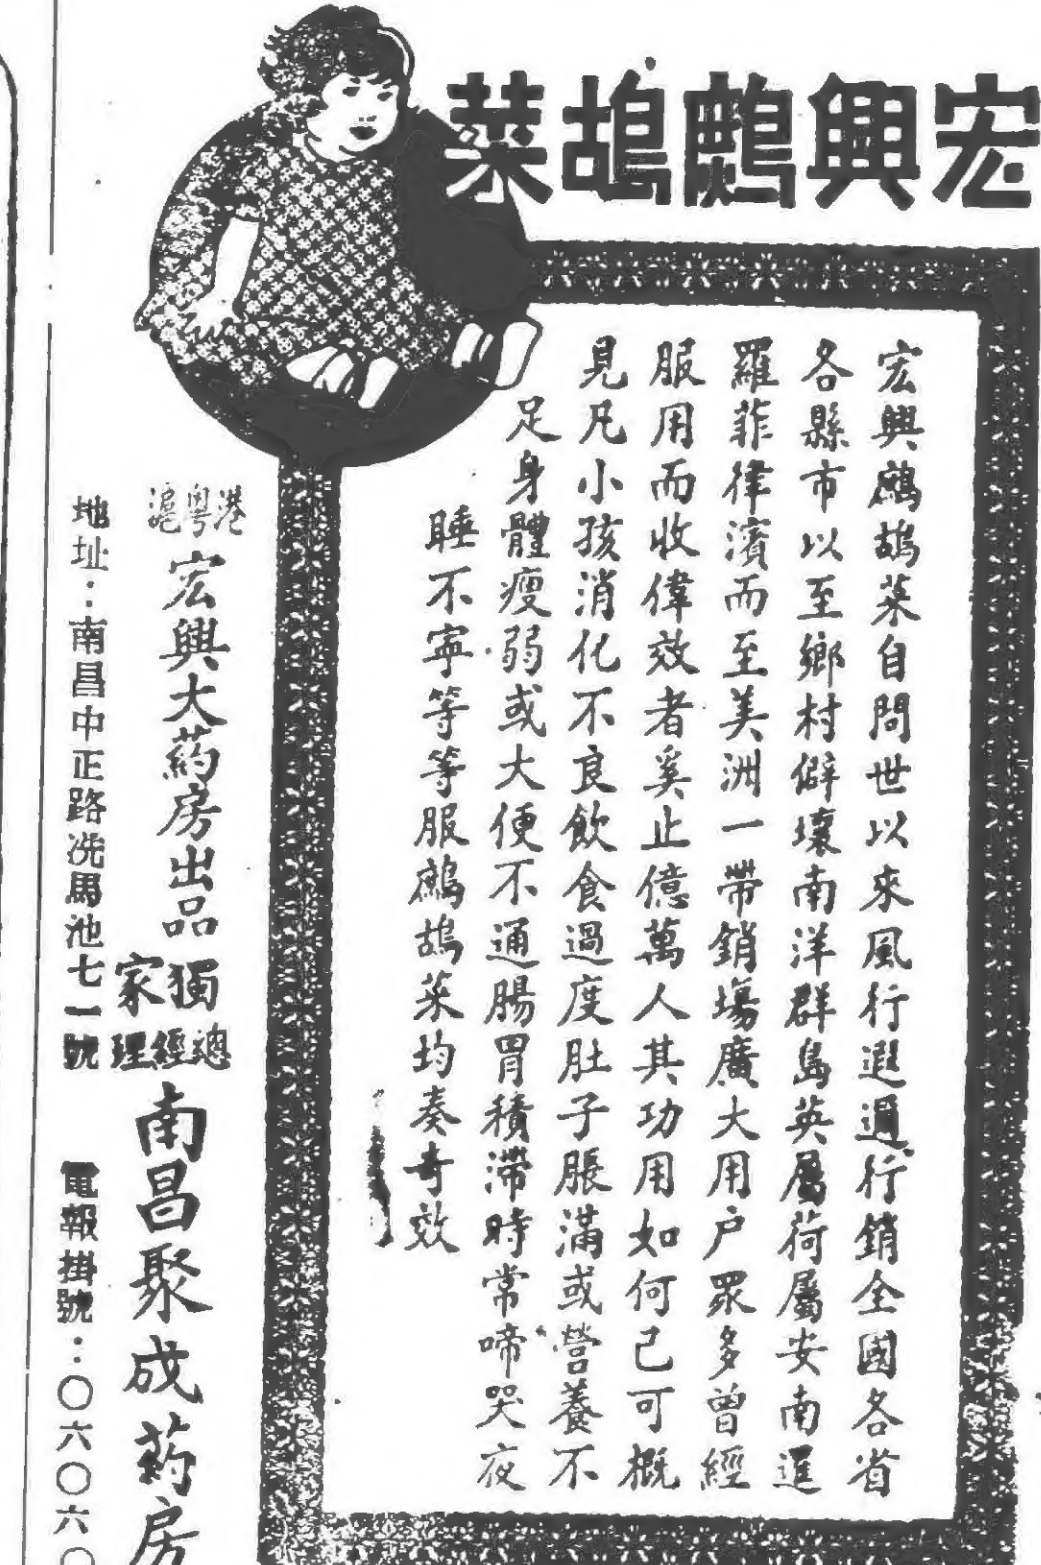 宏興鷓鴣菜
宏興鷓鴣菜自問世以來風行遐邇行銷全國各省
各縣市以至鄉村僻壤南洋群島英屬荷屬安南暹
羅菲律濱而至美洲一帶銷塲廣大用户眾多曾經
服用而收偉效者奚止億萬人其功用如何已可概
見凡小孩消化不良飲食過度肚子脹滿或營養不
足身體瘦弱或大便不通腸胃積滯時常啼哭夜
睡不寧等等服鷓鴣菜均奏奇效
港粵滬
宏興大葯房出品
獨家
總經理
南昌聚成葯房
地址：南昌中正路洗馬池七一號
電報掛號：〇六〇六〇